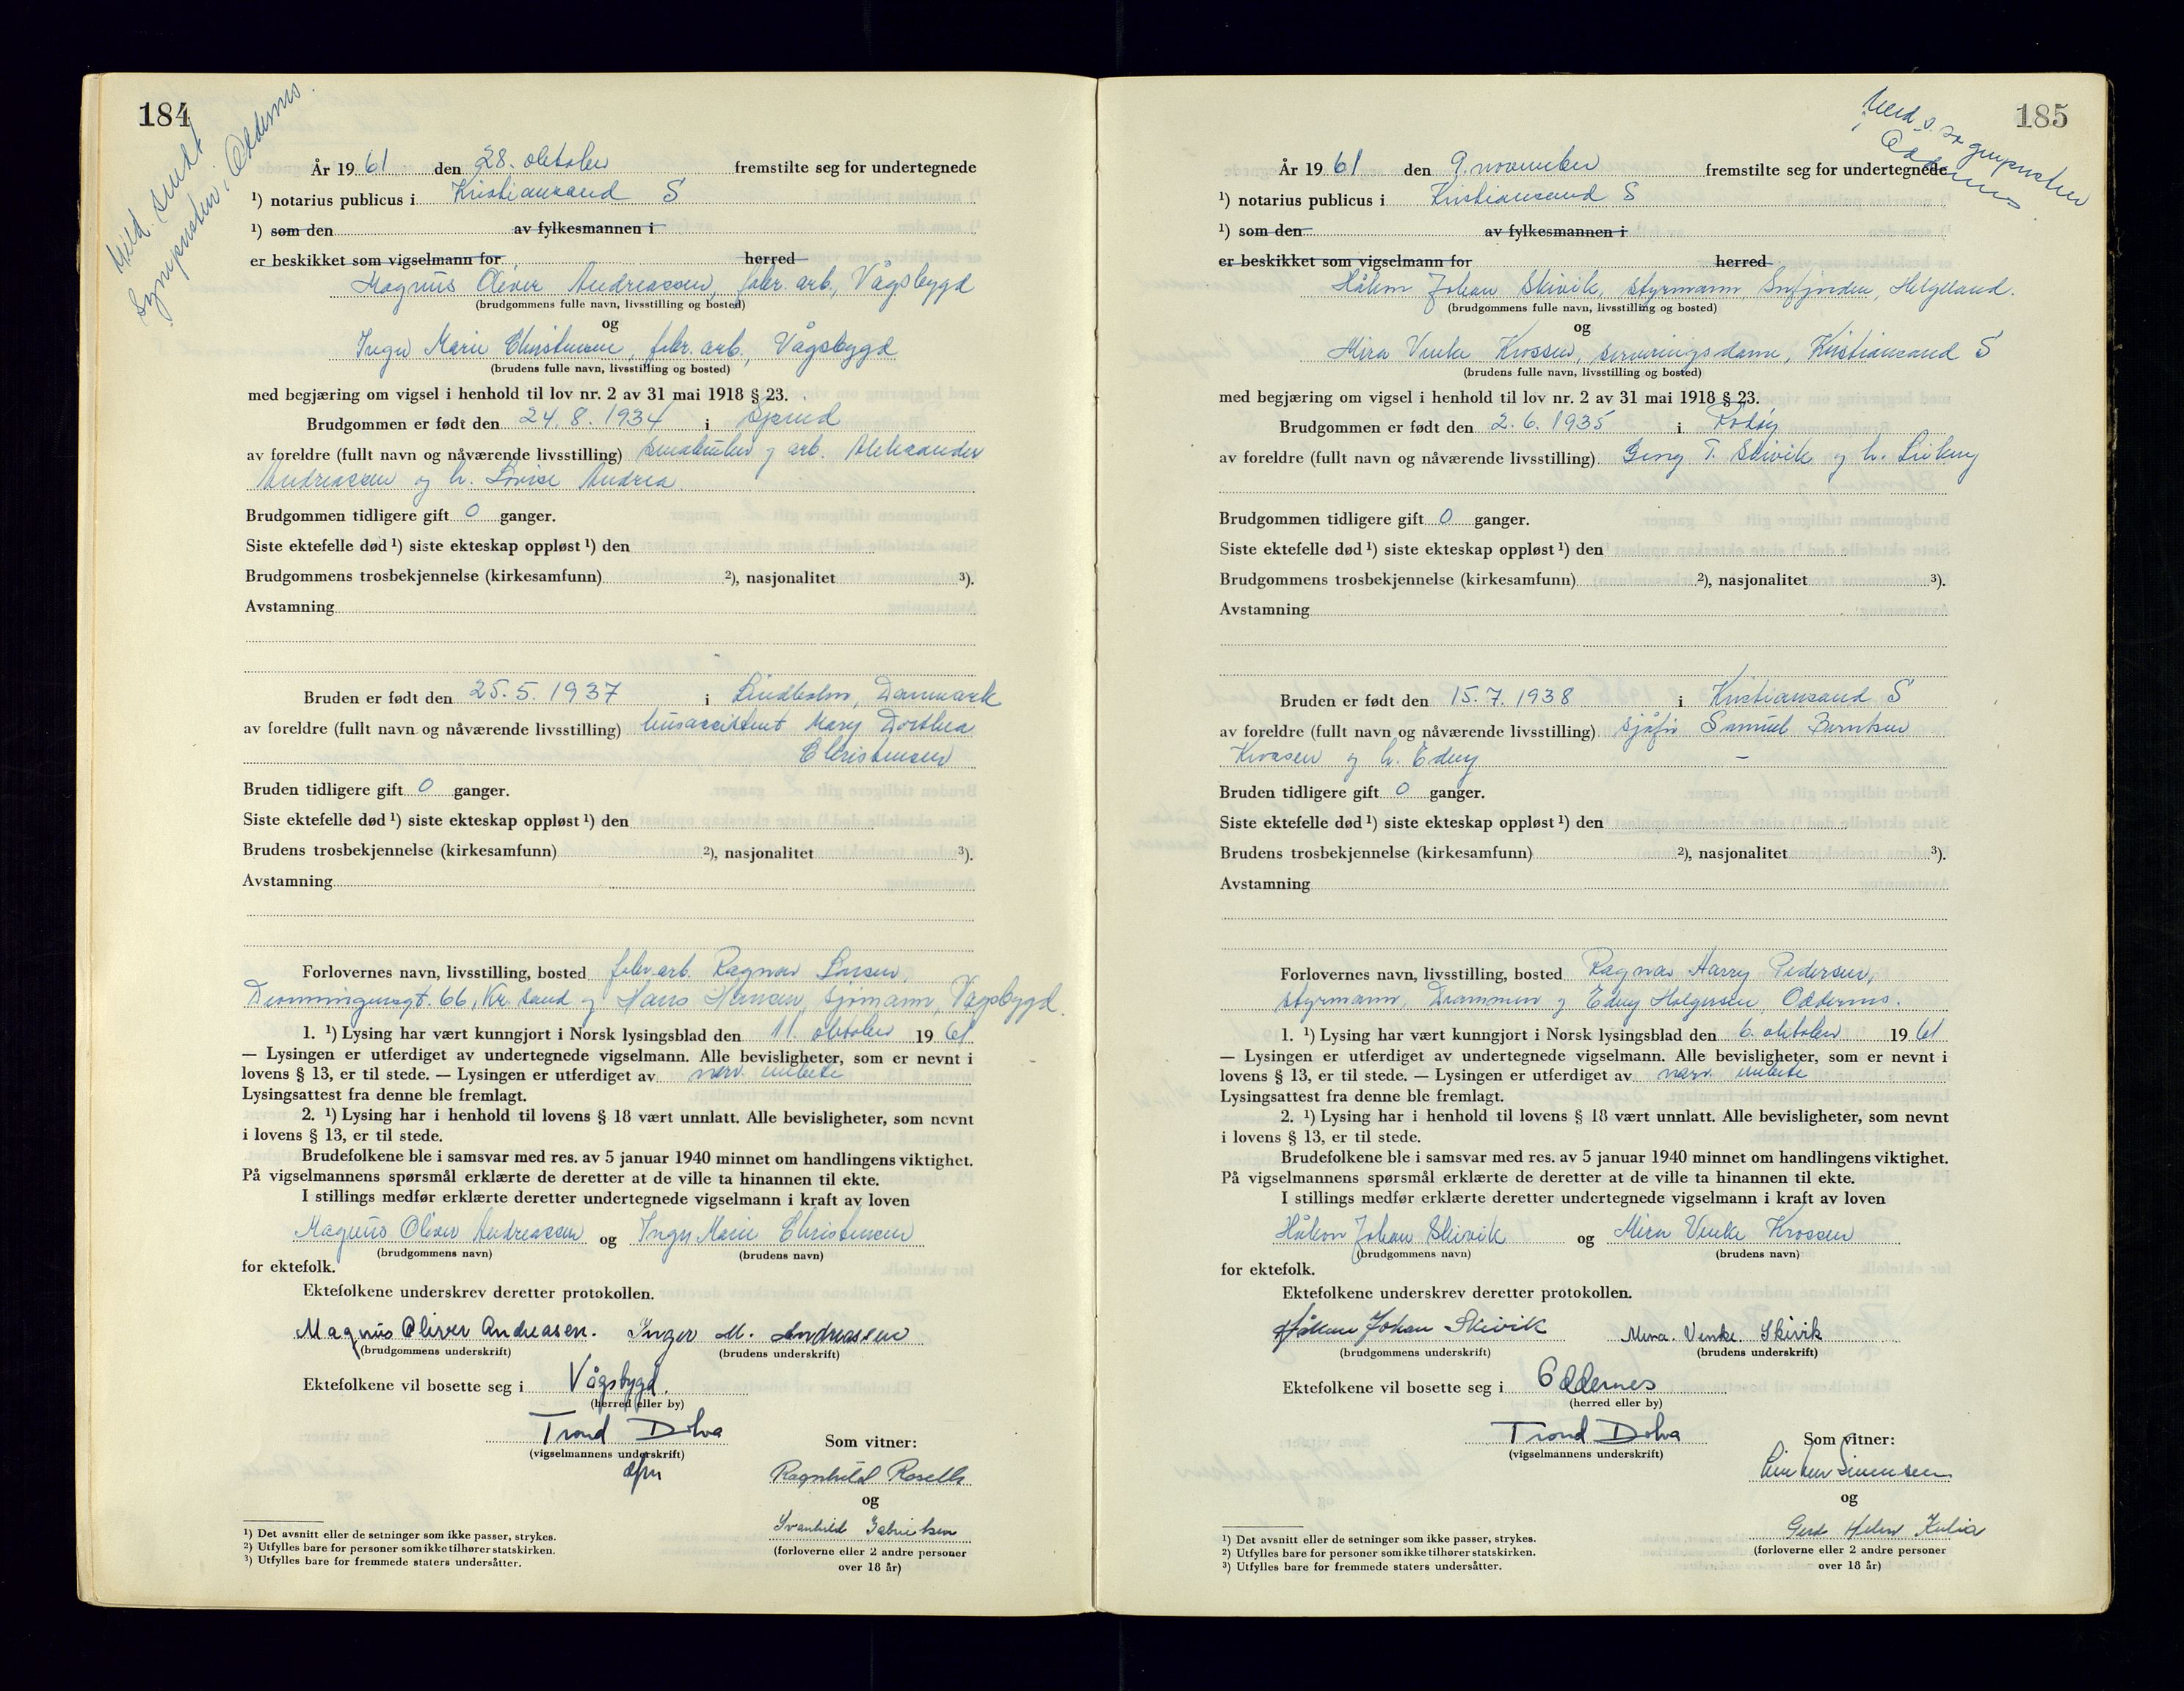 184
Meld. sendt
sognepresten i Oddernes.
År 1961 den 28. oktober fremstilte seg for undertegnede
¹) notarius publicus i Kristiansand S
¹) som den av fylkesmannen i
er beskikket som vigselmann for herred
Magnus Oliver Andreassen, fabr. arb., Vågsbygd
(brudgommens fulle navn, livsstilling og bosted)
og
Inger Marie Christensen, fabr. arb., Vågsbygd
(brudens fulle navn, livsstilling og bosted)
med begjæring om vigsel i henhold til lov nr. 2 av 31 mai 1918 § 23.
Brudgommen er født den 24.8.1934 i
av foreldre (fullt navn og nåværende livsstilling) småbruker og arb. Aleksander
Andreassen og h. Lovise Andrea
Brudgommen tidligere gift 0 ganger.
Siste ektefelle død ¹) siste ekteskap oppløst ¹) den
Brudgommens trosbekjennelse (kirkesamfunn) ²), nasjonalitet ³).
Avstamning
Bruden er født den 25.5.1937 i Lindholm, Danmark
av foreldre (fullt navn og nåværende livsstilling) husassistent Mary Dorthea
Christensen
Bruden tidligere gift 0 ganger.
Siste ektefelle død ¹) siste ekteskap oppløst ¹) den
Brudens trosbekjennelse (kirkesamfunn) ²), nasjonalitet ³).
Avstamning
Forlovernes navn, livsstilling, bosted fabr.arb. Ragnar Larsen,
Dronningensgt. 66, Kr.sand og Hans Hansen, sjømann, Vågsbygd.
1. ¹) Lysing har vært kunngjort i Norsk lysingsblad den 11. oktober 1961
— Lysingen er utferdiget av undertegnede vigselmann. Alle bevisligheter, som er nevnt i
lovens § 13, er til stede. — Lysingen er utferdiget av nærv. embete
Lysingsattest fra denne ble fremlagt.
2. ¹) Lysing har i henhold til lovens § 18 vært unnlatt. Alle bevisligheter, som nevnt
i lovens § 13, er til stede.
Brudefolkene ble i samsvar med res. av 5 januar 1940 minnet om handlingens viktighet.
På vigselmannens spørsmål erklærte de deretter at de ville ta hinannen til ekte.
I stillings medfør erklærte deretter undertegnede vigselmann i kraft av loven
Magnus Oliver Andreassen og Inger Marie Christensen
(brudgommens navn) (brudens navn)
for ektefolk.
Ektefolkene underskrev deretter protokollen.
Magnus Oliver Andreasen. Inger M. Andreassen
(brudgommens underskrift) (brudens underskrift)
Ektefolkene vil bosette seg i Vågsbygd.
(herred eller by)
Trond Dolva
(vigselmannens underskrift)
dfm
Som vitner:
Ragnhild Roselle
og
Svanhild Gabrielsen
(forloverne eller 2 andre personer
over 18 år)
¹) Det avsnitt eller de setninger som ikke passer, strykes.
²) Utfylles bare for personer som ikke tilhører statskirken.
³) Utfylles bare for fremmede staters undersåtter.
185
Meld. s. sognepresten
Oddernes
År 1961 den 9. november fremstilte seg for undertegnede
¹) notarius publicus i Kristiansand S
¹) som den av fylkesmannen i
er beskikket som vigselmann for herred
Håkon Johan Skivik, styrmann, Helgeland.
(brudgommens fulle navn, livsstilling og bosted)
og
Mira Venke Krossen, serveringsdame, Kristiansand S
(brudens fulle navn, livsstilling og bosted)
med begjæring om vigsel i henhold til lov nr. 2 av 31 mai 1918 § 23.
Brudgommen er født den 2.6.1935 i Rødøy
av foreldre (fullt navn og nåværende livsstilling) Georg T. Skivik og h.
Brudgommen tidligere gift 0 ganger.
Siste ektefelle død ¹) siste ekteskap oppløst ¹) den
Brudgommens trosbekjennelse (kirkesamfunn) ²), nasjonalitet ³).
Avstamning
Bruden er født den 15.7.1938 i Kristiansand S
av foreldre (fullt navn og nåværende livsstilling) sjåfør Samuel Berntsen
Krossen og h. Edny —
Bruden tidligere gift 0 ganger.
Siste ektefelle død ¹) siste ekteskap oppløst ¹) den
Brudens trosbekjennelse (kirkesamfunn) ²), nasjonalitet ³).
Avstamning
Forlovernes navn, livsstilling, bosted Ragnar Harry Pedersen,
styrmann, Drammen og Edny Holgersen, Oddernes.
1. ¹) Lysing har vært kunngjort i Norsk lysingsblad den 6. oktober 1961
— Lysingen er utferdiget av undertegnede vigselmann. Alle bevisligheter, som er nevnt i
lovens § 13, er til stede. — Lysingen er utferdiget av nærv. embete
Lysingsattest fra denne ble fremlagt.
2. ¹) Lysing har i henhold til lovens § 18 vært unnlatt. Alle bevisligheter, som nevnt
i lovens § 13, er til stede.
Brudefolkene ble i samsvar med res. av 5 januar 1940 minnet om handlingens viktighet.
På vigselmannens spørsmål erklærte de deretter at de ville ta hinannen til ekte.
I stillings medfør erklærte deretter undertegnede vigselmann i kraft av loven
Håkon Johan Skivik og Mira Venke Krossen
(brudgommens navn) (brudens navn)
for ektefolk.
Ektefolkene underskrev deretter protokollen.
Håkon Johan Skivik Mira. Venke. Skivik
(brudgommens underskrift) (brudens underskrift)
Ektefolkene vil bosette seg i Oddernes
(herred eller by)
Trond Dolva
(vigselmannens underskrift)
Som vitner:
Simensen
og
Gerd Helen Kulia
(forloverne eller 2 andre personer
over 18 år)
¹) Det avsnitt eller de setninger som ikke passer, strykes.
²) Utfylles bare for personer som ikke tilhører statskirken.
³) Utfylles bare for fremmede staters undersåtter.